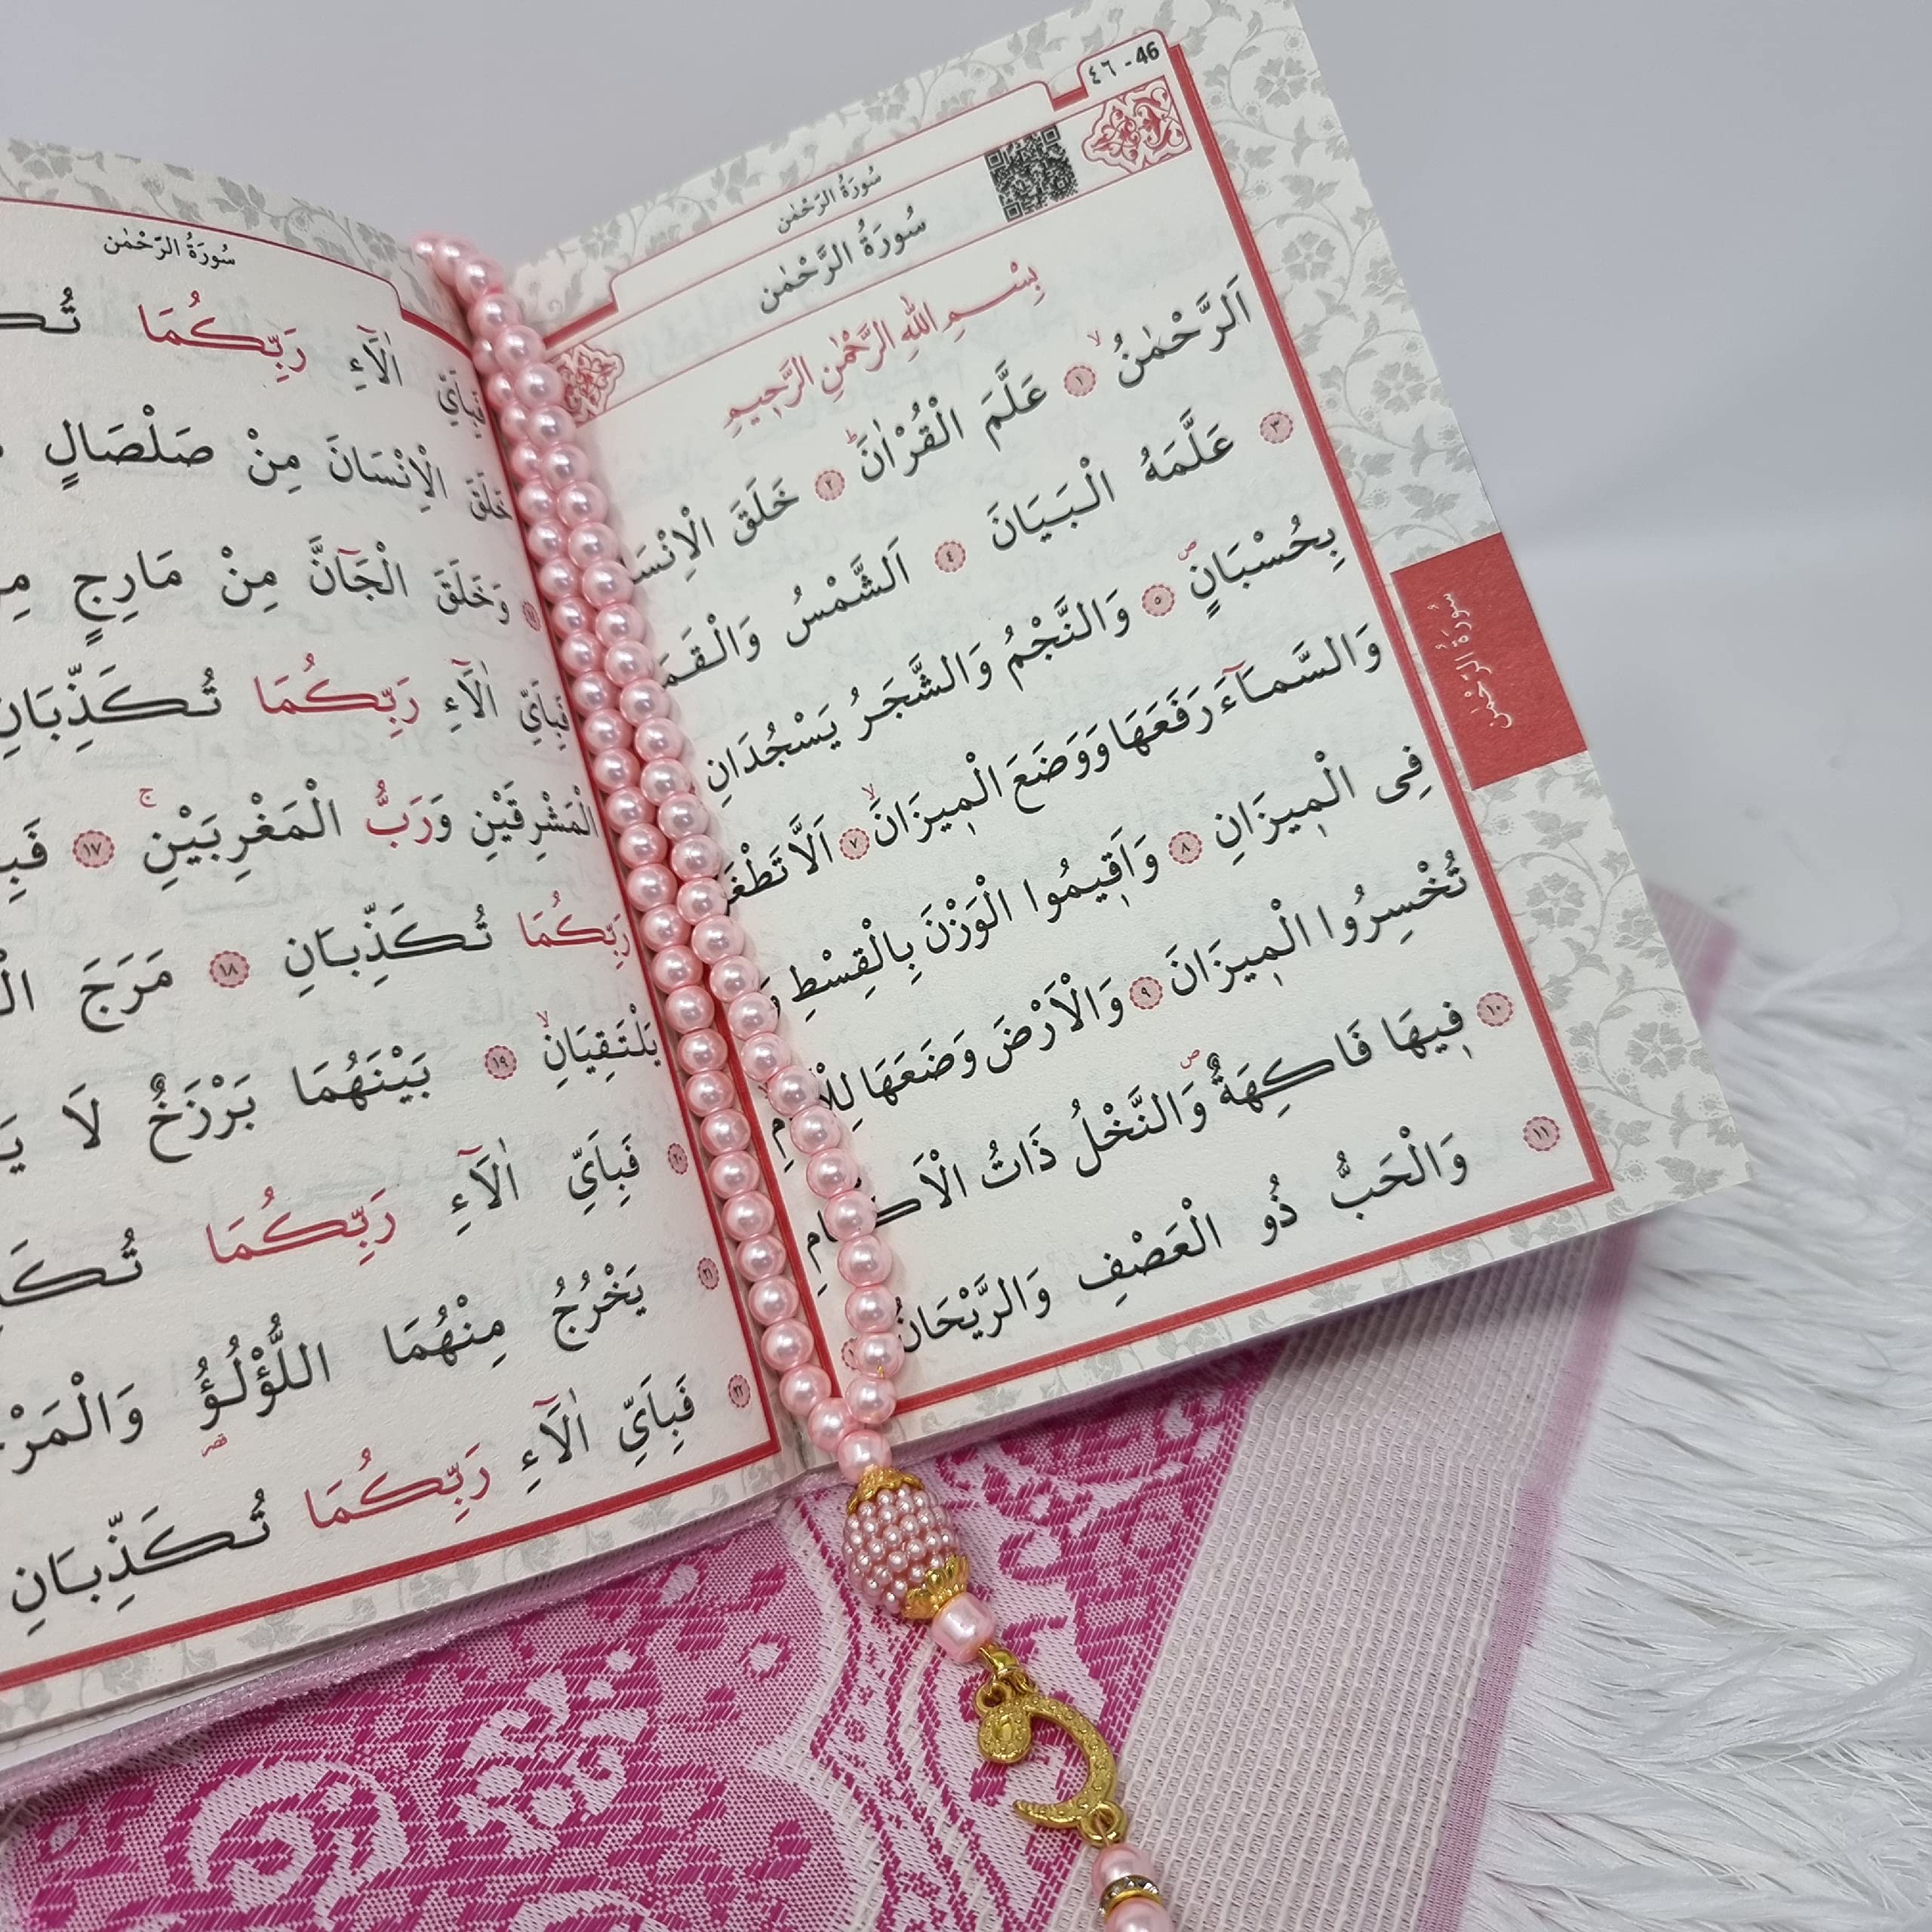 ٤٦ - 46
سُورَةُ الرَّحْمٰن
سُورَةُ الرَّحْمٰن
بِسْمِ اللّٰهِ الرَّحْمٰنِ الرَّحِيمِ
اَلرَّحْمٰنُۙ ١ عَلَّمَ الْقُرْاٰنَؕ ٢ خَلَقَ
٣ عَلَّمَهُ الْبَيَانَ ٤ اَلشَّمْسُ
بِحُسْبَانٍۖ ٥ وَالنَّجْمُ وَالشَّجَرُ يَسْجُدَانِ
وَالسَّمَٓاءَ رَفَعَهَا وَوَضَعَ الْمٖيزَانَۙ ٧ اَلَّا
فِى الْمٖيزَانِ ٨ وَاَقٖيمُوا الْوَزْنَ بِالْقِسْطِ
تُخْسِرُوا الْمٖيزَانَ ٩ وَالْاَرْضَ وَضَعَهَا
١٠ فٖيهَا فَاكِهَةٌۖ وَالنَّخْلُ ذَاتُ
١١ وَالْحَبُّ ذُو الْعَصْفِ وَالرَّيْحَانُ
سُورَةُ الرَّحْمٰن
سُورَةُ الرَّحْمٰن
فَبِاَيِّ اٰلَٓاءِ رَبِّكُمَا
خَلَقَ الْاِنْسَانَ مِنْ صَلْصَالٍ
وَخَلَقَ الْجَٓانَّ مِنْ مَارِجٍ
فَبِاَيِّ اٰلَٓاءِ رَبِّكُمَا تُكَذِّبَانِ
الْمَشْرِقَيْنِ وَرَبُّ الْمَغْرِبَيْنِۚ ١٧
رَبِّكُمَا تُكَذِّبَانِ ١٨ مَرَجَ
يَلْتَقِيَانِۙ ١٩ بَيْنَهُمَا بَرْزَخٌ لَا
٢٠ فَبِاَيِّ اٰلَٓاءِ رَبِّكُمَا
٢١ يَخْرُجُ مِنْهُمَا اللُّؤْلُؤُ
٢٢ فَبِاَيِّ اٰلَٓاءِ رَبِّكُمَا تُكَذِّبَانِ